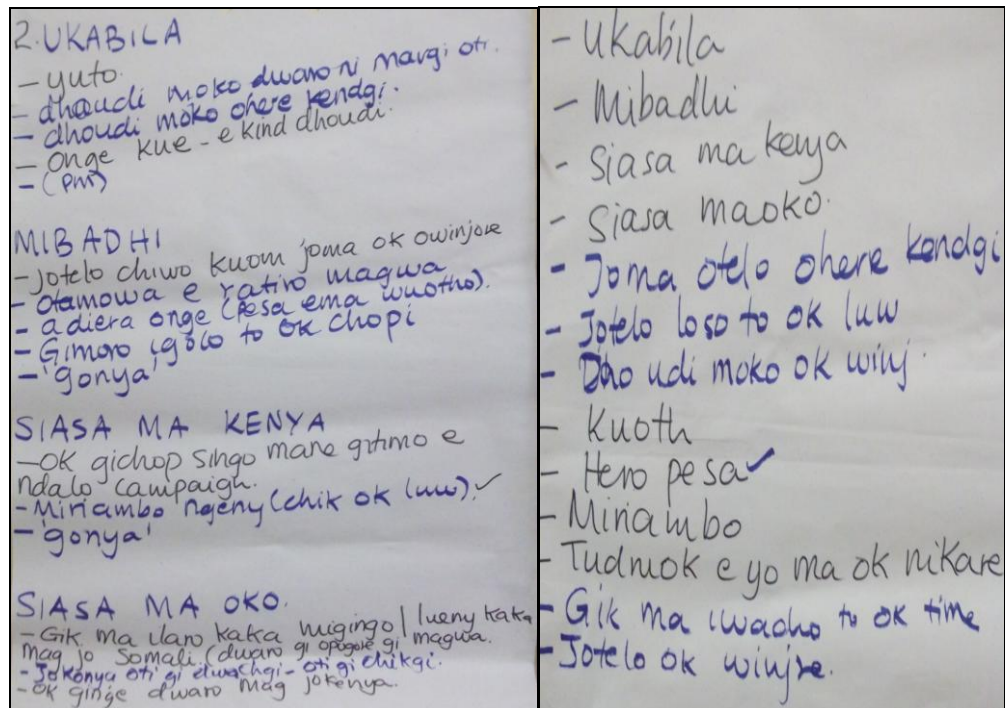 2. UKABILA
- yuto.
- dhoudi moko dwaro ni margi oti.
- dhoudi moko ohere kendgi.
- Onge kue - e kind dhoudi.
- (pm)
MIBADHI
- Jotelo chiwo kuom joma ok owinjore
- Otamowa e ratiro magwa
- adiera onge (pesa ema wuotho).
- Gimoro igolo to ok chopi
- 'gonya'
SIASA MA KENYA
- OK gichop singo mane gitimo e
ndalo campaign.
- Miriambo ngeny (chik ok luw). ✓
- 'gonya'
SIASA MA OKO.
- Gik ma ilaro kaka migingo / lueny kaka
mag jo Somali. (dwaro gi opogore gi magwa.
- Jokonya oti gi dwachgi - oti gi chikgi.
- OK ginge dwaro mag jokenya.
- Ukabila
- Mibadhi
- Siasa ma kenya
- Siasa maoko.
- Joma otelo ohere kendgi
- Jotelo loso to ok luw
- Dhoudi moko ok winj.
- Kuoth
- Hero pesa ✓
- Miriambo
- Tudruok e yo ma ok nikare
- Gik ma iwacho to ok time
- Jotelo ok winjre.